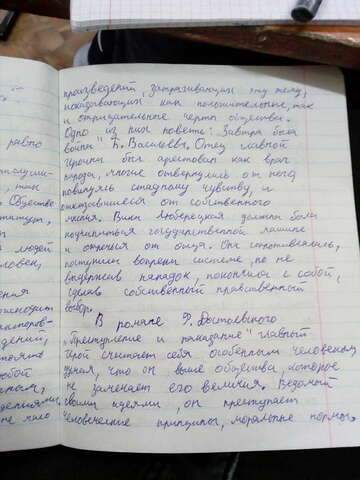 равно
слуши-
, так
Обществе
литературы,
ы
людей
человек,
ения
происходит
мотров-
дений,
стоят
любой
ным,
дениями,
не мало
произведений, затрагивающих эту тему,
показывающих как положительные, так
и отрицательные черты общества.
Одно из них повети: Завтра была
война" Б. Васильев. Отец главной
героини был арестован как враг
народа, многие отвернулись от него
повинуясь стадному чувству, и
отказавшиеся от собственного
мнения. Вика Люберецкая должна была
подчиниться государственной машине
и отречься от отца. Она сопротивлялась,
поступила вопреки системе, но не
выдержав нападок, покончила с собой,
сделав собственный нравственный
выбор.
В романе Ф. Достаевского
„Преступление и наказание" главный
герой считает себя особенным человеком,
думая, что он выше общества, которое
не замечает его величия. Ведомый
своими идеями, он преступает
человеческие принципы, моральные нормы.